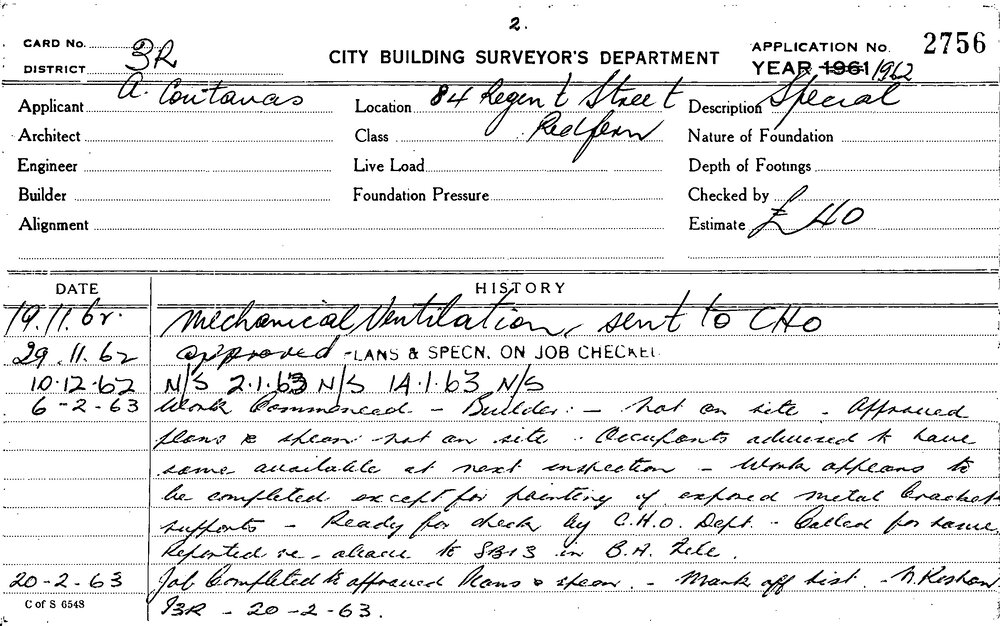 2.
CARD No.
DISTRICT 3R
CITY BUILDING SURVEYOR'S DEPARTMENT
APPLICATION No. 2756
YEAR 1961 1962
Applicant A. Coutavas
Location 84 Regent Street
Description Special
Architect
Class Redfern
Nature of Foundation
Engineer
Live Load
Depth of Footings
Builder
Foundation Pressure
Checked by
Alignment
Estimate £40
DATE HISTORY
19.11.62. Mechanical Ventilation, sent to CHO
29.11.62 approved LANS & SPECN. ON JOB CHECKE
10.12.62 N/S 2.1.63 N/S 14.1.63 N/S
6-2-63 Work Commenced - Builder: - not on site - Approved
plans & specn not on site. Occupants advised to have
same available at next inspection - Work appears to
be completed except for painting of exposed metal bracket
supports - Ready for check by C.H.O. Dept. - Called for same
Reported re-above to SB13 in B.A. File.
20-2-63 Job Completed to approved Plans & specn. - Mark off list -
C of S 6548
13R - 20-2-63.